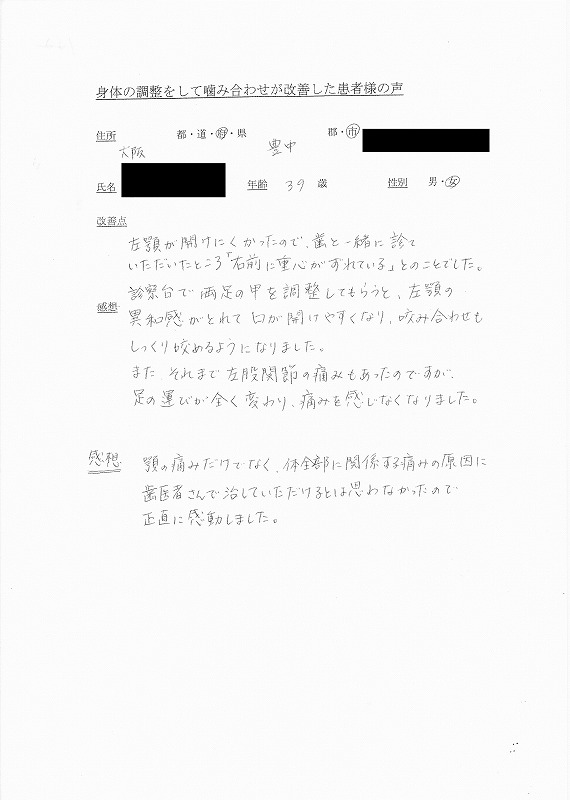 身体の調整をして噛み合わせが改善した患者様の声
住所 大阪 都・道・府・県 豊中 郡・市
氏名 年齢 39 歳 性別 男・女
改善点
左顎が開けにくかったので、歯と一緒に診て
いただいたところ「右前に重心がずれている」とのことでした。
診察台で両足の甲を調整してもらうと、左顎の
感想
異和感がとれて口が開けやすくなり、咬み合わせも
しっくり咬めるようになりました。
また、それまで左股関節の痛みもあったのですが、
足の運びが全く変わり、痛みを感じなくなりました。
感想 顎の痛みだけでなく、体全部に関係する痛みの原因に
歯医者さんで治していただけるとは思わなかったので
正直に感動しました。